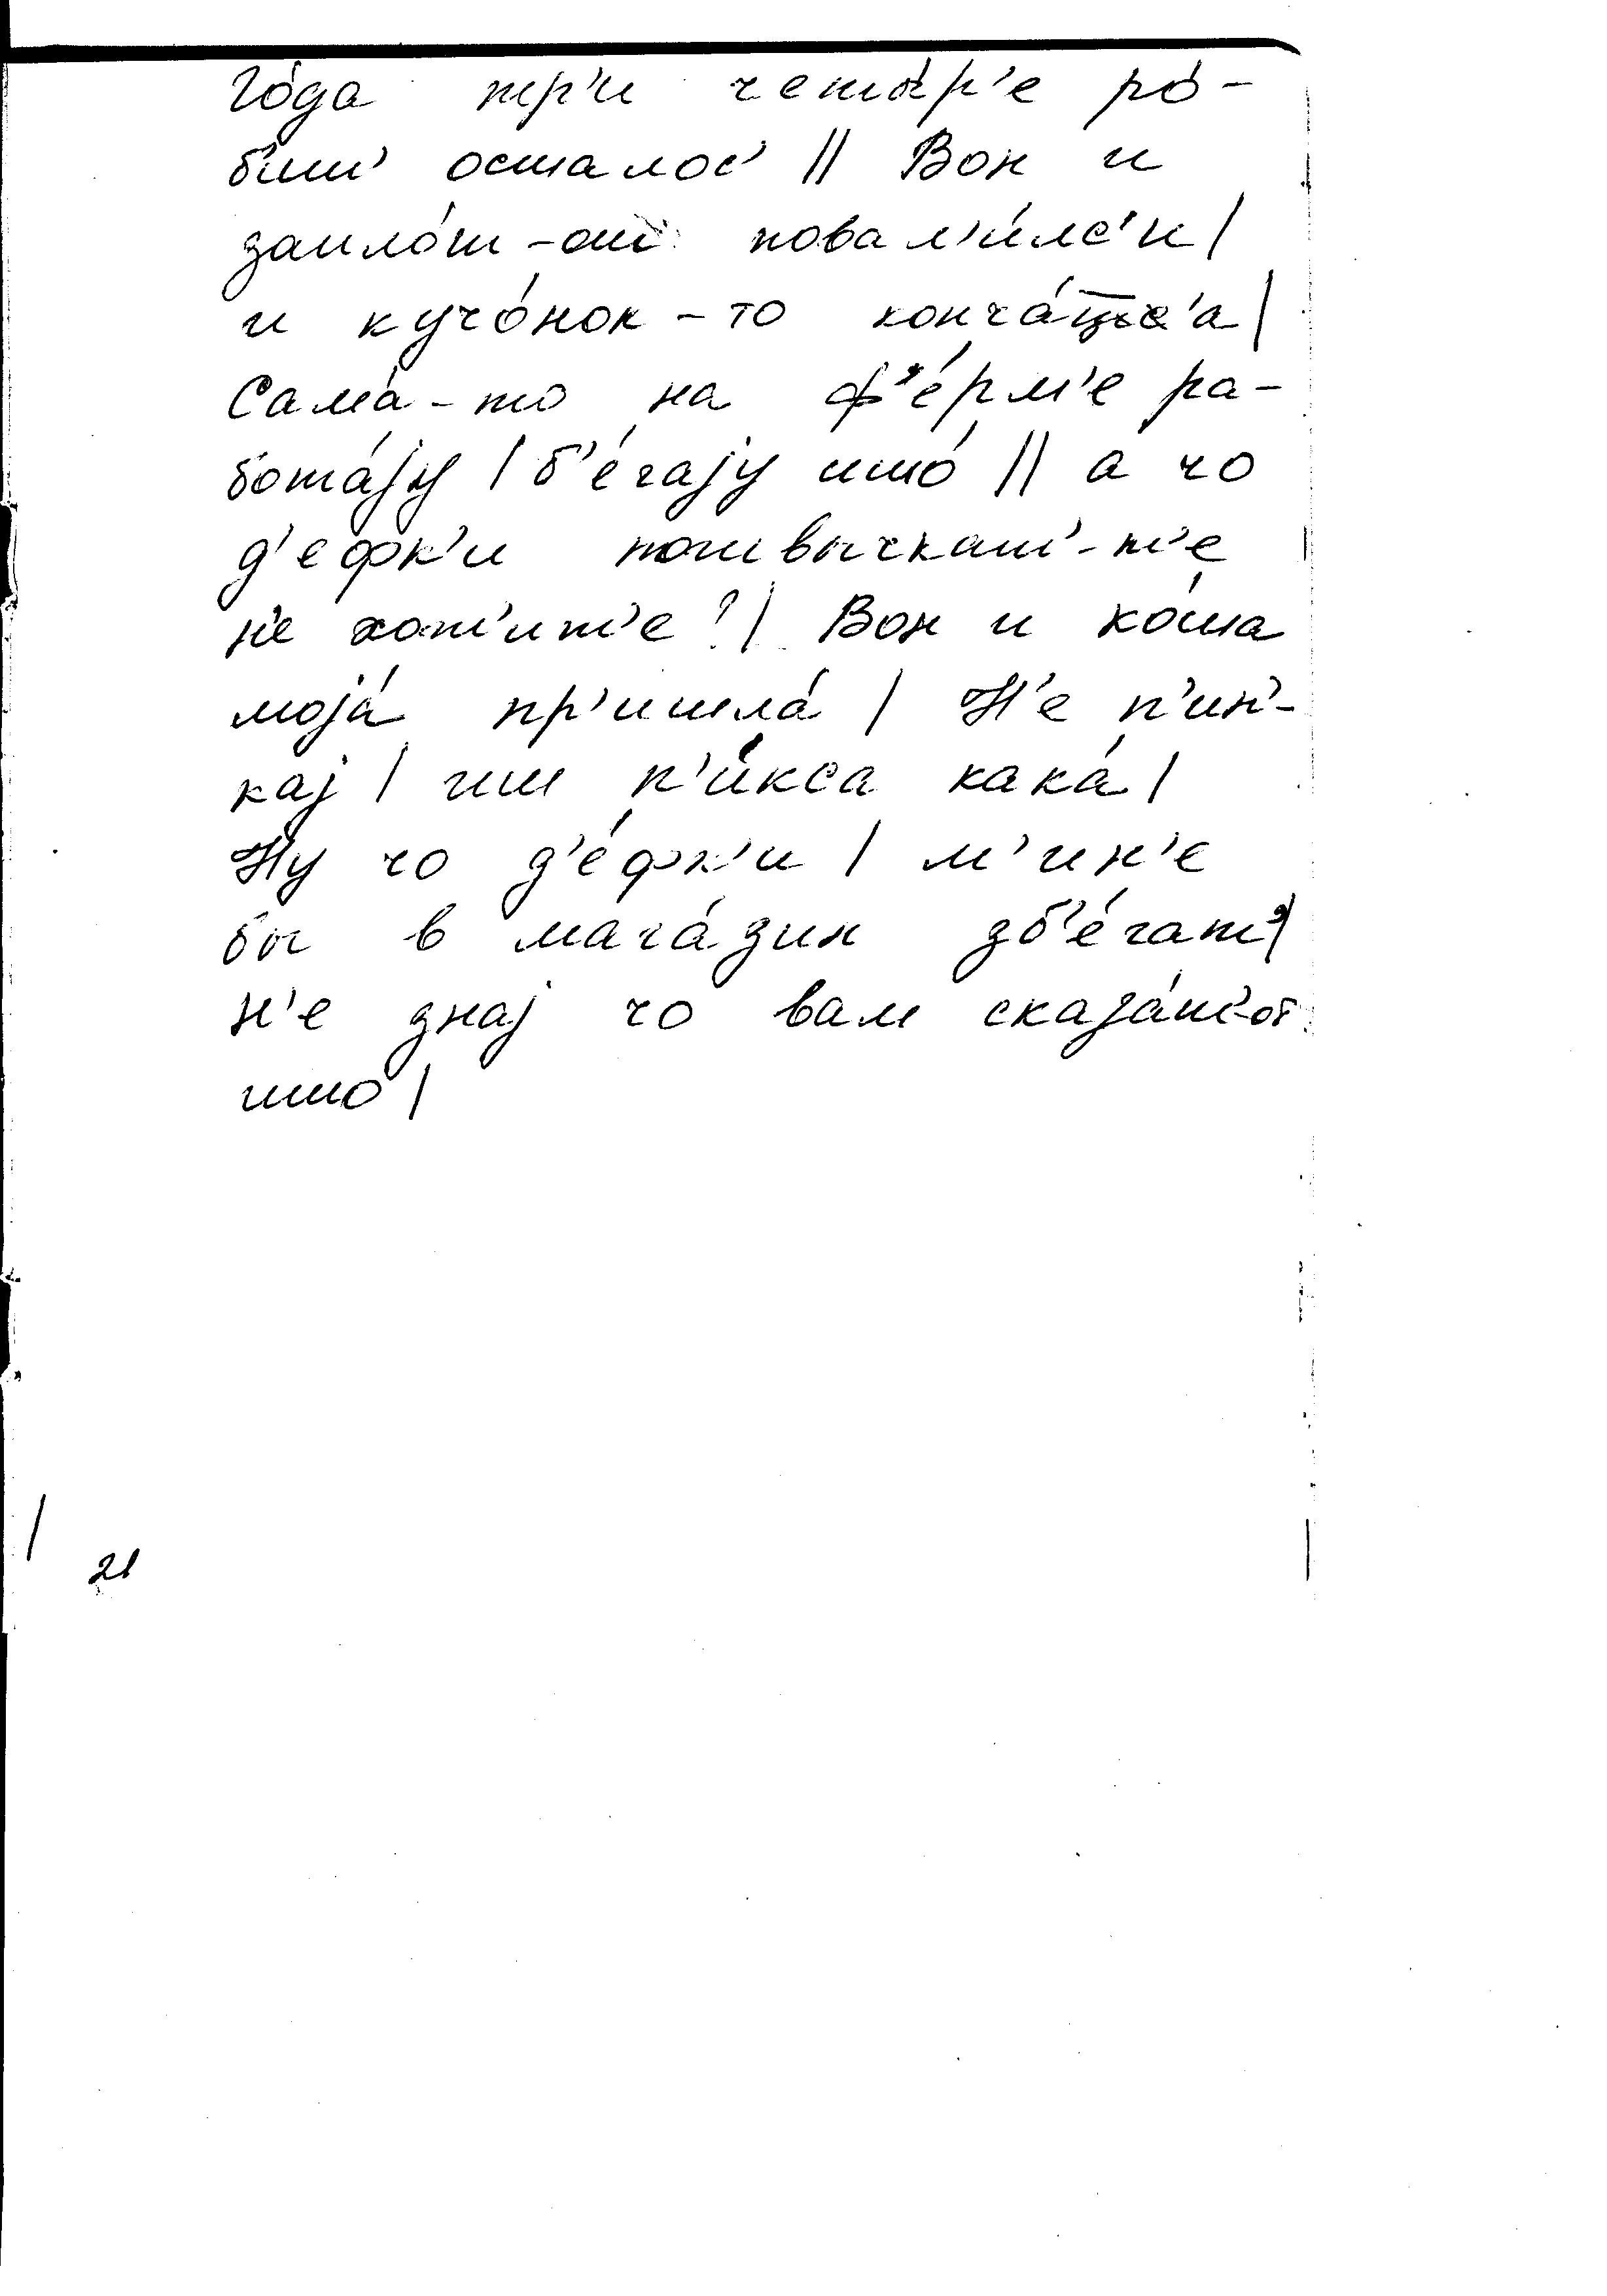 го́да тр'и четы́р'е ро́-
бит' осталос' || Вон и
заплот-от повал'и́лс'и |
и кучо́нок-то конча́тьс'а |
Сама́-то на ф'е́рм'е ра-
бота́jу | б'е́гаjу ишо́ || а чо
д'ефк'и пошвычкат'-т'е
н'е хот'ит'е? | Вон и ко́ша
моjа́ пр'ишла́ | Н'е п'ин'-
каj | иш п'и́кса кака́ |
Ну чо д'е́фк'и | м'ин'е
бы в мага́зин зб'е́гат' |
н'е знаj чо вам сказа́т'-от
ишо |
21